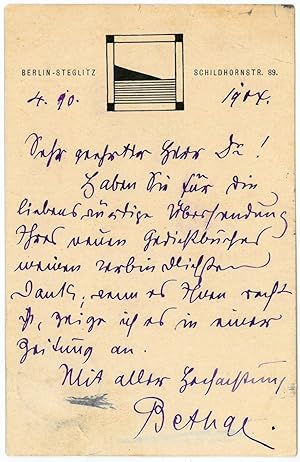 BERLIN-STEGLITZ SCHILDHORNSTR. 89.
4. 90. 1904.
Sehr geehrter Herr Dr!
Haben Sie für die
liebenswürdige Übersendung
Ihres neuen Gedichtbuches
meinen verbindlichsten
Dank, wenn es Ihnen recht
ist, zeige ich es in einer
Zeitung an.
Mit aller Hochachtung
Bethge.